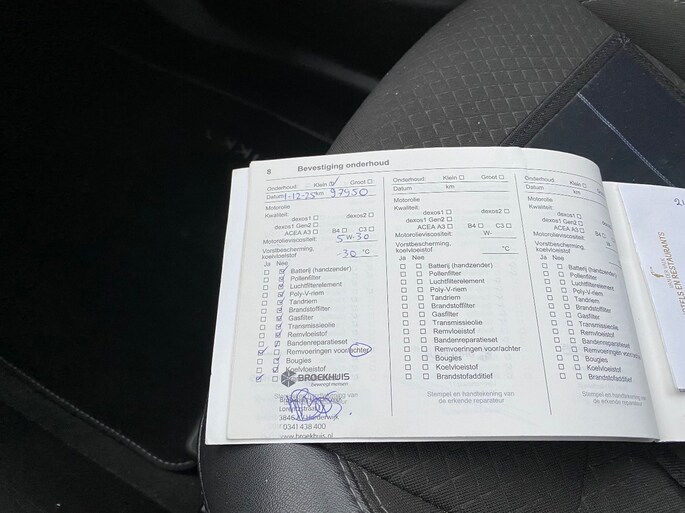 8 Bevestiging onderhoud
Onderhoud: Klein ☑ Groot ☐
Datum 1-12-25 km 97950
Motorolie
Kwaliteit:
dexos1 ☐ dexos2 ☐
dexos1 Gen2 ☐
ACEA A3 ☐ B4 ☐ C3 ☐
Motorolieviscositeit: 5 W-30
Vorstbescherming,
koelvloeistof -30 °C
Ja Nee
Batterij (handzender)
Pollenfilter
Luchtfilterelement
Poly-V-riem
Tandriem
Brandstoffilter
Gasfilter
Transmissieolie
Remvloeistof
Bandenreparatieset
Remvoeringen voor/achter
Bougies
Koelvloeistof
BROEKHUIS
beweegt mensen
Stempel en handtekening van
0341 438 400
www.broekhuis.nl
Onderhoud: Klein ☐ Groot ☐
Datum km
Motorolie
Kwaliteit:
dexos1 ☐ dexos2 ☐
dexos1 Gen2 ☐
ACEA A3 ☐ B4 ☐ C3 ☐
Motorolieviscositeit: W-
Vorstbescherming,
koelvloeistof °C
Ja Nee
Batterij (handzender)
Pollenfilter
Luchtfilterelement
Poly-V-riem
Tandriem
Brandstoffilter
Gasfilter
Transmissieolie
Remvloeistof
Bandenreparatieset
Remvoeringen voor/achter
Bougies
Koelvloeistof
Brandstofadditief
Stempel en handtekening van
de erkende reparateur
Onderhoud: Klein ☐
Datum km
Motorolie
Kwaliteit:
dexos1 ☐
dexos1 Gen2 ☐
ACEA A3 ☐
Motorolieviscositeit:
Vorstbescherming,
koelvloeistof
Ja Nee
Batterij (handzender)
Pollenfilter
Luchtfilterelement
Poly-V-riem
Tandriem
Brandstoffilter
Gasfilter
Transmissieolie
Remvloeistof
Bandenreparatieset
Remvoeringen voor/achter
Bougies
Koelvloeistof
Brandstofadditief
Stempel en handtekening van
de erkende reparateur